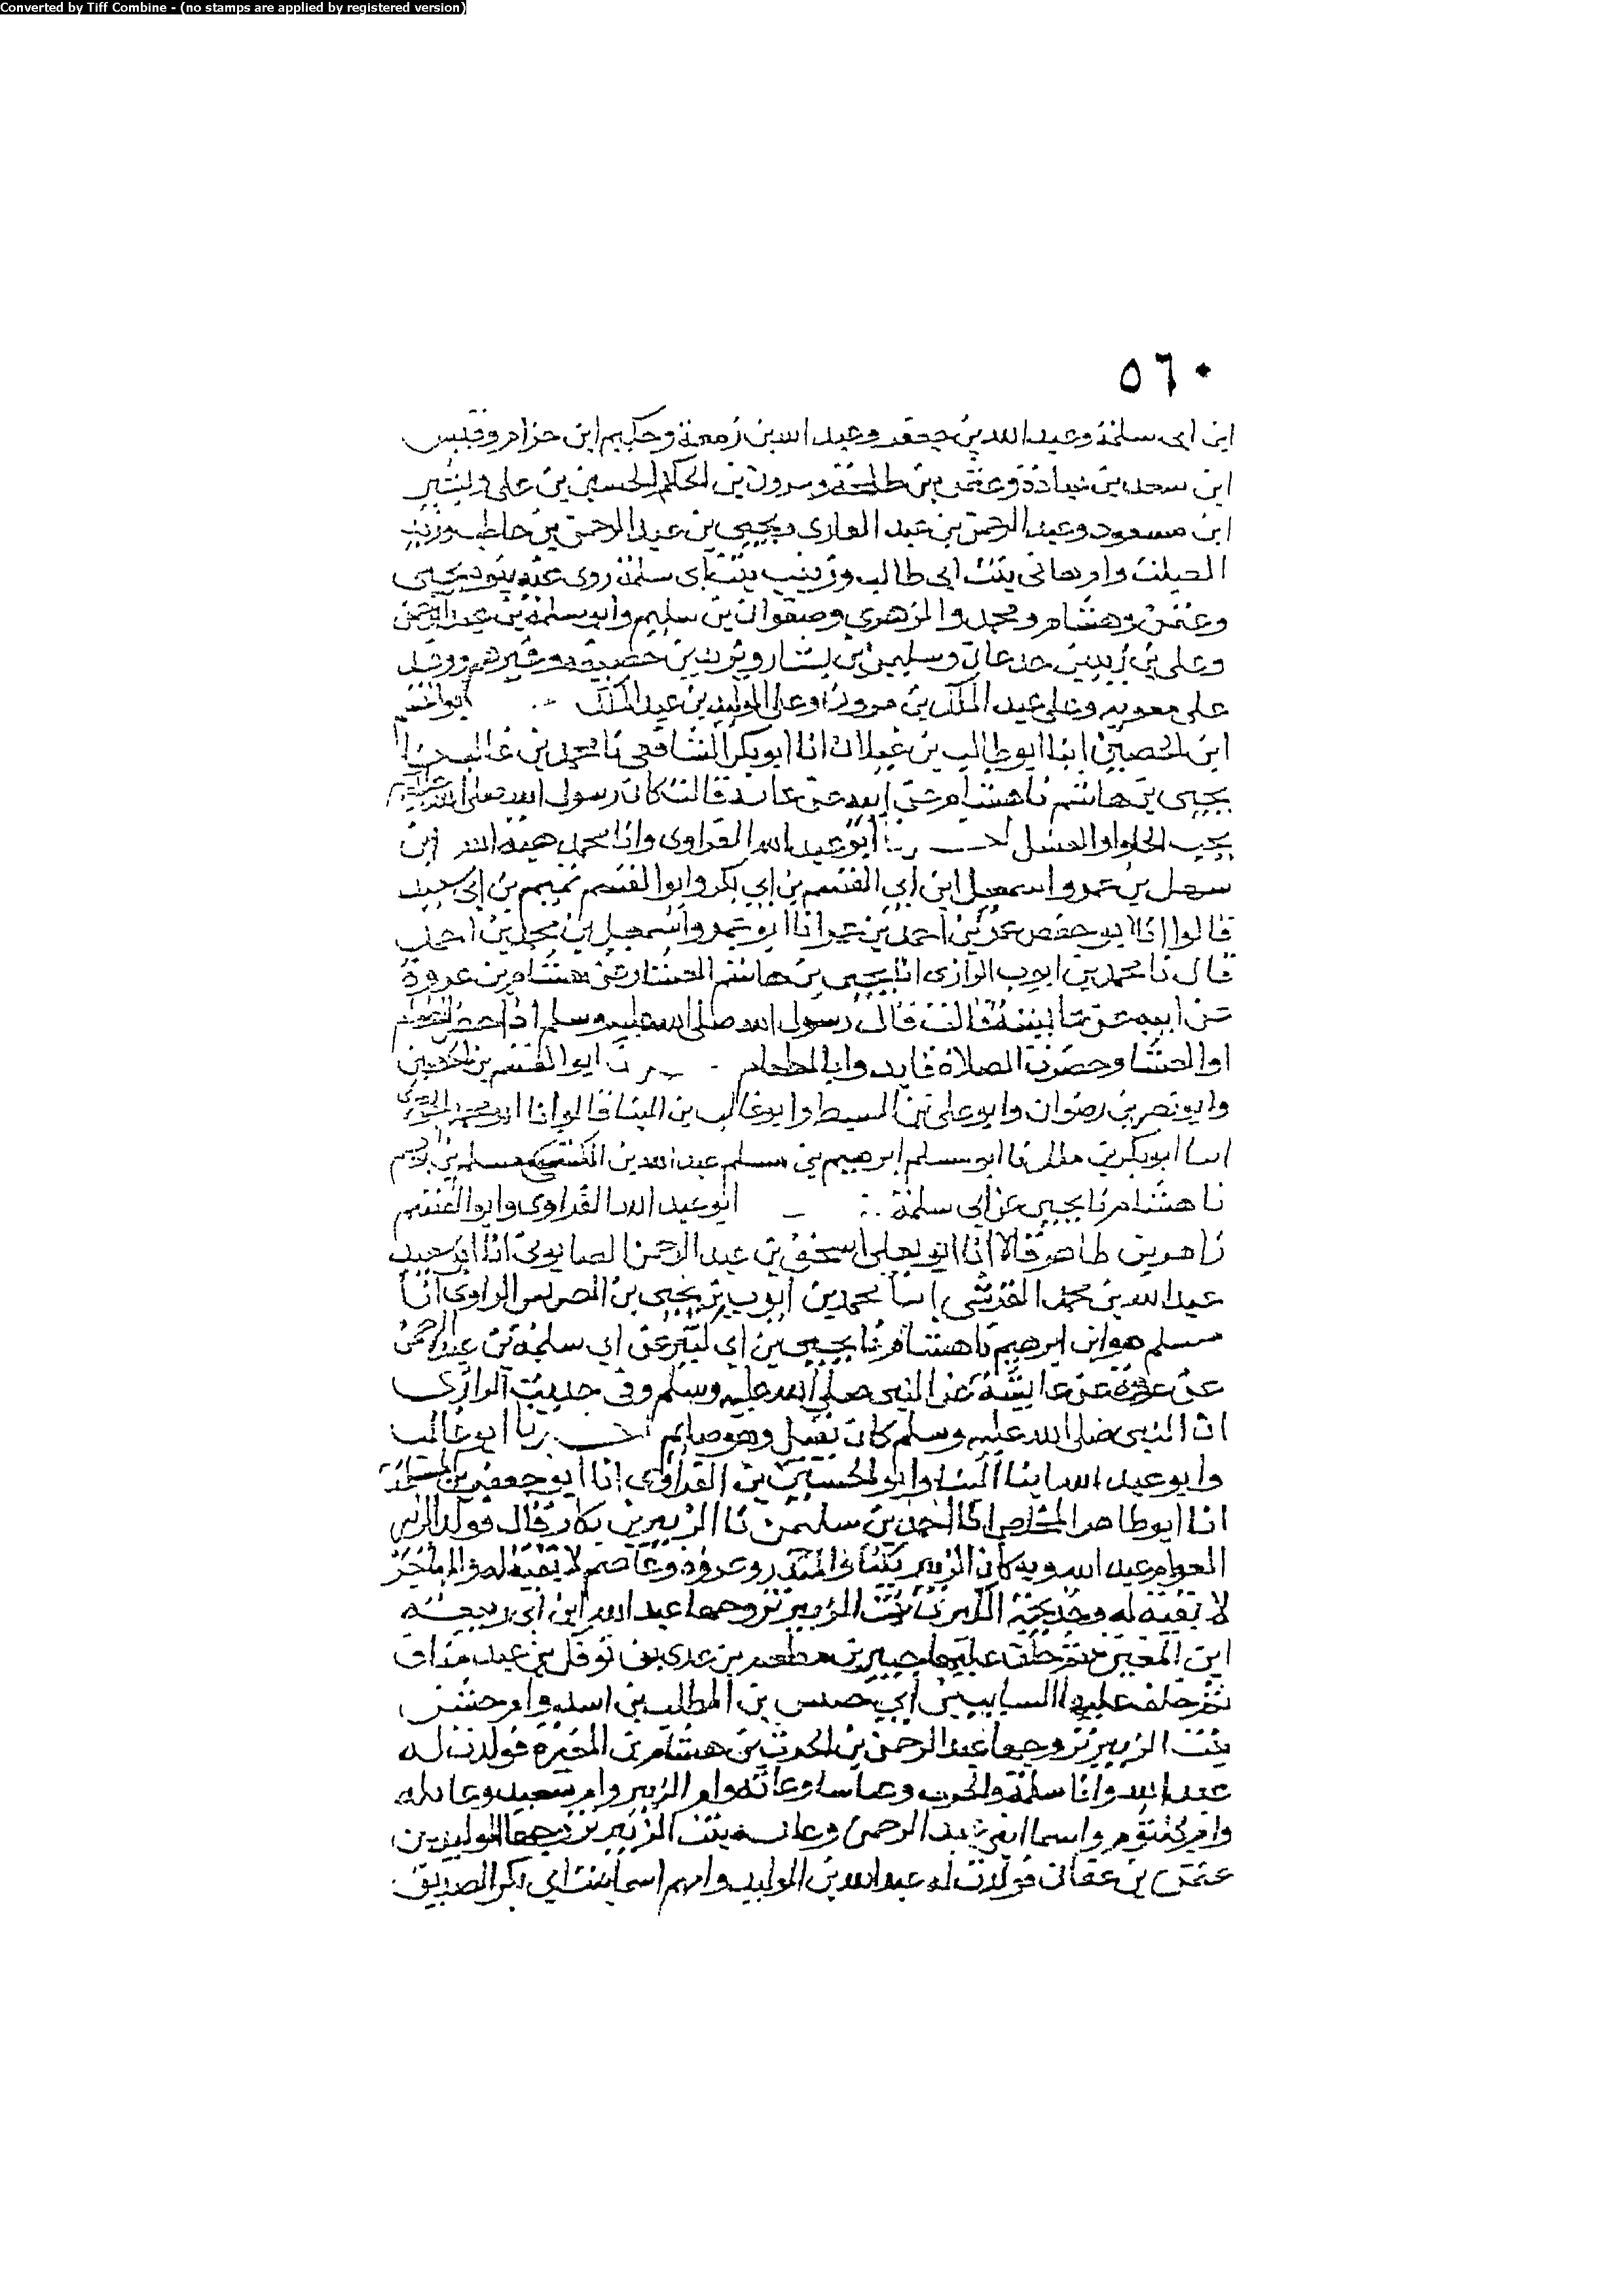 Converted by Tiff Combine - (no stamps are applied by registered version)
٥٦٠
ابن ابى سلمة وعبد الله بن جعفر وعبد الله بن زمعة وحكيم ابن حزام وقيس
ابن سعد بن عبادة وعثمن بن طلحة ومرون بن الحكم والحسين بن على وبشير
ابن مسعود وعبد الرحمن بن عبد القارى ويحيى بن عبد الرحمن بن حاطب وزبيد
الصلت وام هانى بنت ابى طالب وزينب بنت ابى سلمة روى عنه بنوه يحيى
وعثمن وهشام ومحمد والزهري وصفوان بن سليم وابو سلمة بن عبد الرحمن
وعلى بن زيد بن جدعان وسليمن بن يسار ويزيد بن خصيفة وغيرهم ووفد
على معويه وعلى عبد الملك بن مرون وعلى الوليد بن عبد الملك ابو القسم
ابن الحصين انبا ابو طالب بن غيلان انا ابو بكر الشافعى نا محمد بن غالب حدثنا
يحيى بن هاشم نا هشام عن ابيه عن عائشة قالت كان رسول الله صلى الله عليه وسلم
يحب الحلوا والعسل اخبرنا ابو عبد الله الفراوى وانا محمد هبة الله ابن
سهل بن عمر واسمعيل ابن ابى القسم بن ابى بكر وابو القسم تميم بن ابى سعيد
قالوا انا ابو حفص عمر بن احمد بن عمر انا ابو عمرو اسمعيل بن محمد بن احمد
قال نا محمد بن ايوب الرازى انا يحيى بن هاشم الغسانى عن هشام بن عروة
عن ابيه عن عايشة قالت قال رسول الله صلى الله عليه وسلم اذا حضر الطعام
او العشا وحضرت الصلاة فابدوا بالطعام ابو القسم بن الحصين
وابو نصر بن رضوان وابو على بن السبط وابو غالب بن البنا قالوا انا ابو محمد الجوهرى
انبا ابو بكر بن ملك نا ابو مسلم ابرهيم بن عبد الله نا مسلم بن ابرهيم
نا هشام نا يحيى عن ابى سلمة ابو عبد الله الفراوى وابو القسم
زاهر بن طاهر قالا انا ابو يعلى اسحق بن عبد الرحمن الصابونى انا ابو سعيد
عبد الله بن محمد القرشى انبا محمد بن ايوب بن يحيى بن الضريس الرازى انا
مسلم هو ابن ابرهيم نا هشام نا يحيى بن ابى كثير عن ابى سلمة بن عبد الرحمن
عن عروة عن عايشة عن النبى صلى الله عليه وسلم وفى حديث الرازى
ان النبى صلى الله عليه وسلم كان يقبل وهو صايم اخبرنا ابو غالب
وابو عبد الله ابنا البنا وابو الحسين بن الفراوى انا ابو جعفر بن المسلمة
انا ابو طاهر المخلص انا احمد بن سليمن نا الزبير بن بكار قال فولد الزبير
العوام عبد الله وبه كان الزبير يكنا والمنذر وعروة وعاصم لا بقية له والمهاجر
لا بقية له وخديجة الكبرى بنت الزبير تزوجها عبد الله ابن ابى ربيعة
ابن المغيرة ثم خلف عليها جبير بن مطعم بن عدى بن نوفل بن عبد مناف
ثم خلف عليها السايب بن ابى حبيش بن المطلب بن اسد وام حسن
بنت الزبير تزوجها عبد الرحمن بن الحرث بن هشام بن المغيرة فولدت له
عبد الله وابا سلمة والحرث وعياشا وعاتكة وام الزبير وام سعيد وعايشة
وام كلثوم واسما بنى عبد الرحمن وعايشة بنت الزبير تزوجها الوليد بن
عثمن بن عفان فولدت له عبد الله بن الوليد وامهم اسما بنت ابى بكر الصديق